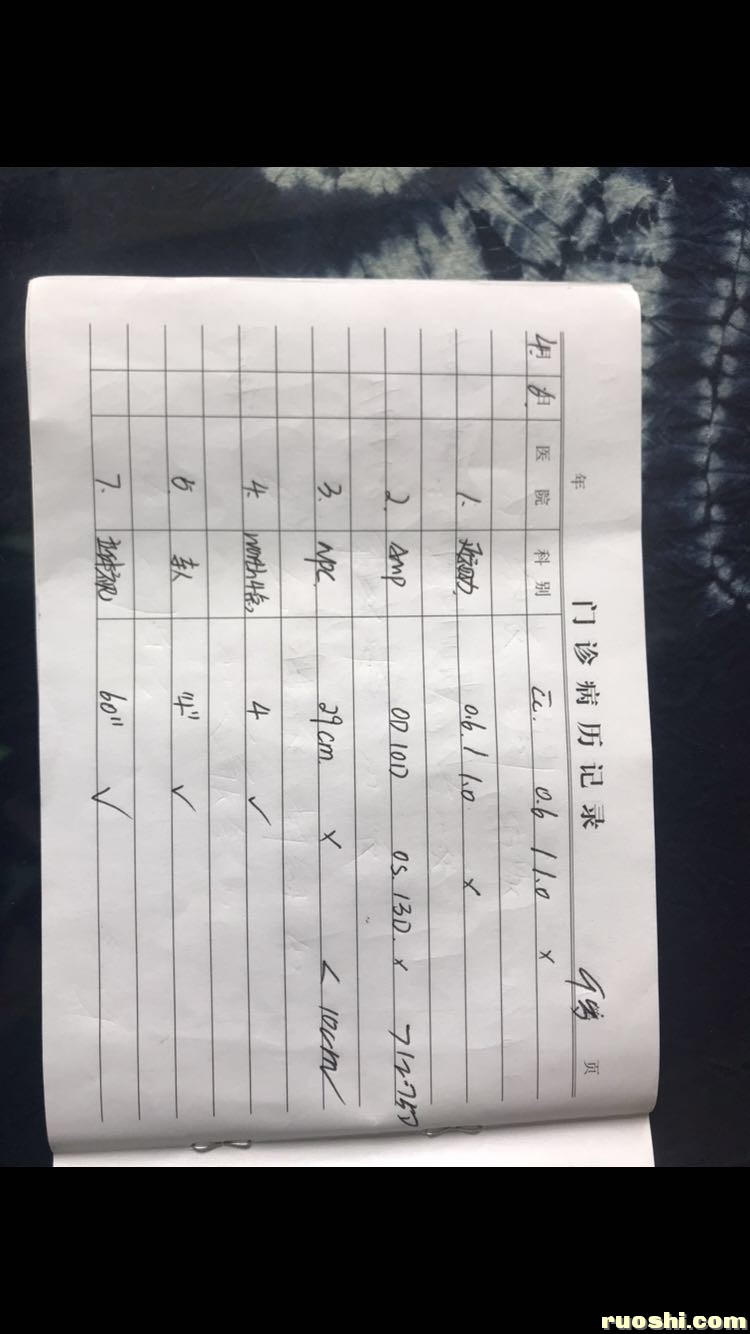 门诊病历记录
年 页
月 日 医院 科别
4. 6. cc. 0.6 / 1.0 ×
1. 近视力 0.6 / 1.0 ×
2. Amp OD 10D OS. 13D. × >12.75D
3. NPC 29cm. × < 10cm
4. Worth4点 4 ✓
5. "4" ✓
7. 60" ✓
ruoshi.com